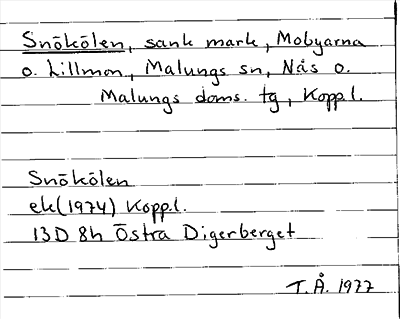 Snökölen, sank mark, Mobyarna
o. Lillmon, Malungs sn, Nås o.
Malungs doms. tg, Kopp.l.
Snökölen
ek (1974) Kopp.l.
13D 8h Östra Digerberget
T.Å. 1977